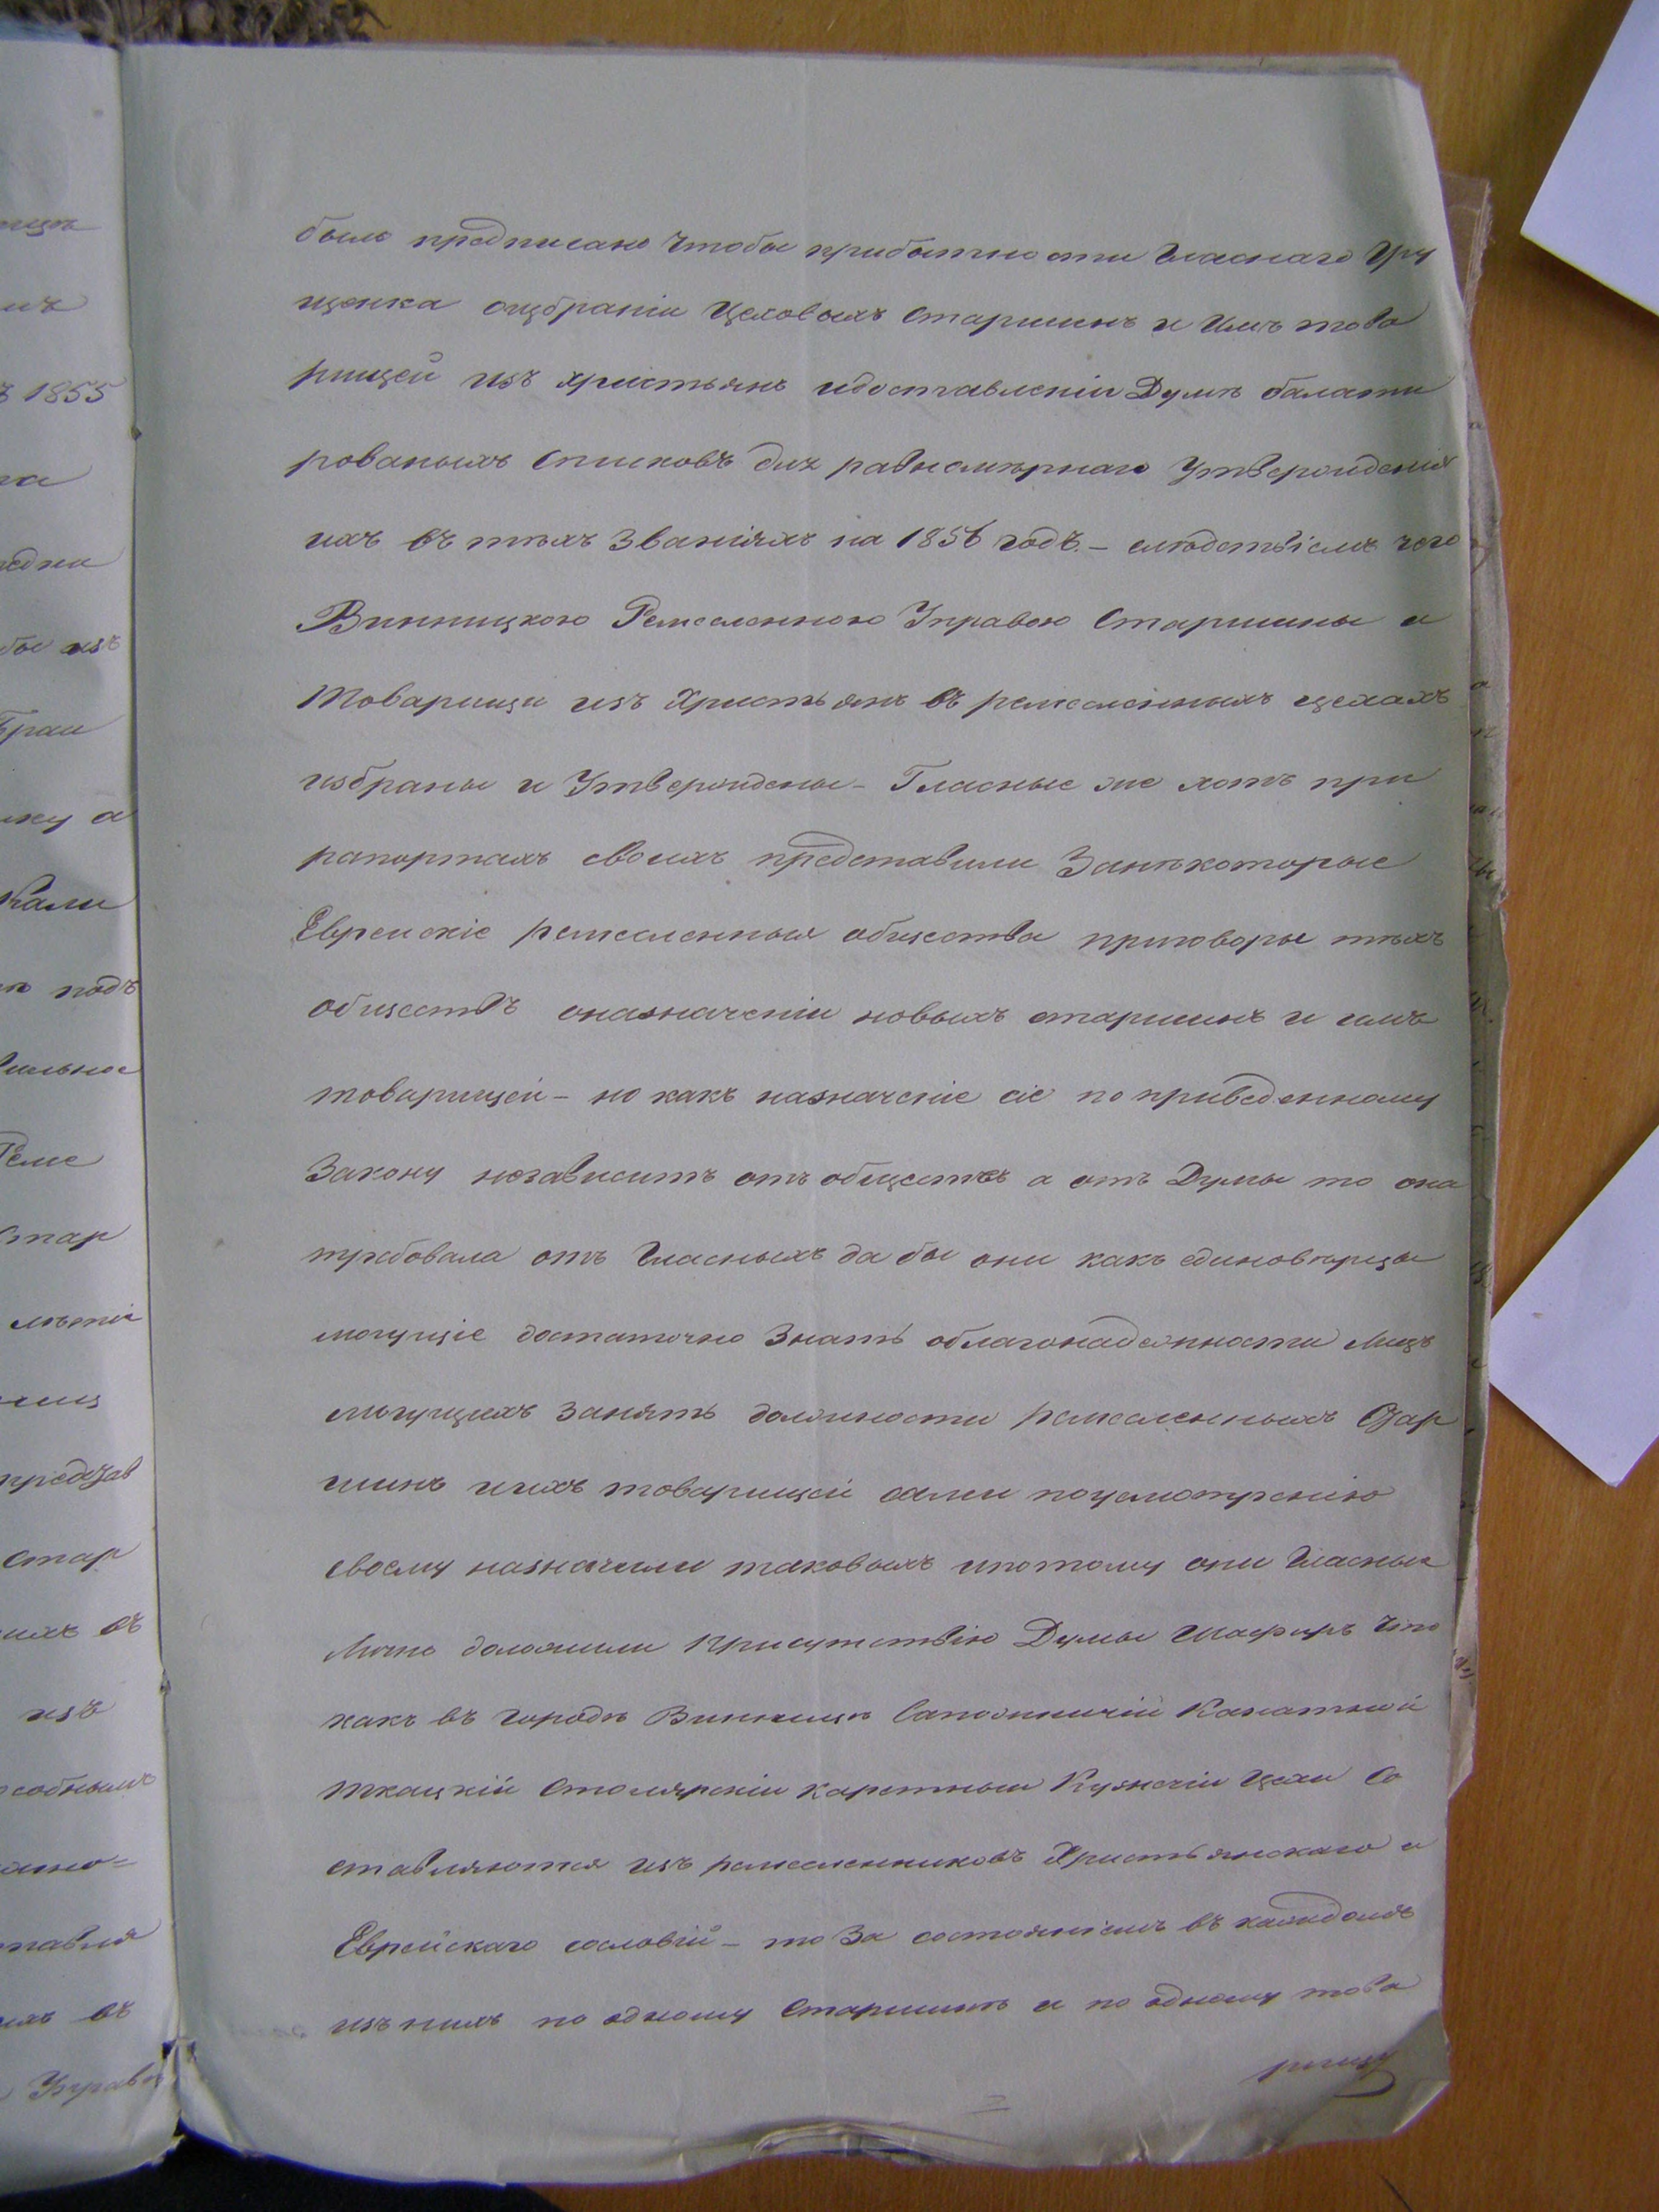 было предписано чтобы прибытности Гласнаго Гру
щенка оизбраніи Цеховыхъ Старшинъ и Имъ това
рищей изъ христьянъ идоставленіи Думѣ балати
рованыхъ Списковъ для равномѣрнаго Утвержденія
ихъ въ тѣхъ Званіяхъ на 1856 годъ – слѣдствіемъ чего
Винницкою Ремесленною Управою Старшины и
Товарищи изъ Христьянъ въ ремесленныхъ цехахъ
избраны и Утверждены – Гласные же хотъ при
рапортахъ своихъ представили Занѣкоторые
Еврейскіе ремесленныя общества приговоры тѣхъ
обществъ оназначеніи новыхъ старшинъ и имъ
товарищей – но какъ назначеніе сіе по приведенному
Закону независитъ отъ обществъ а отъ Думы то она
требовала отъ Гласныхъ да бы они какъ единовѣрцы
могущіе достаточно Знать облагонадежности Лицъ
могущихъ Занять должности ремесленныхъ Стар
шинъ иихъ товарищей сами поусмотренію
своему назначили таковыхъ ипотому они Гласные
Лично доложили Присутствію Думы Шафиръ что
какъ въ городѣ Винницѣ Сапожничій Канатной
Ткацкій Столярскій каретный Кузнечій Цехи Со
ставляются изъ ремесленниковъ Христьянскаго и
Еврейскаго сословій – то За состояніемъ въ каждомъ
изъ нихъ по одному Старшинѣ и по одному това
рищу
1855
подъ
Стар
Стар
въ
изъ
въ